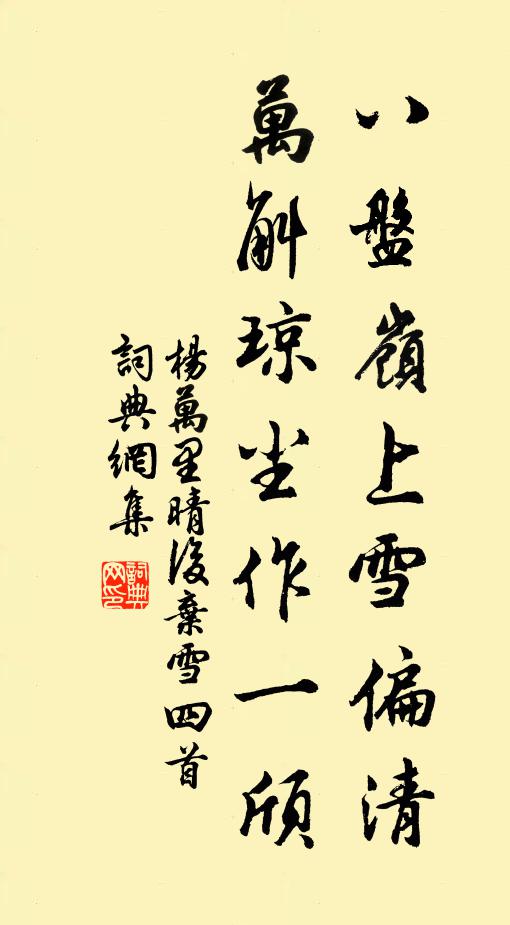 八盤嶺上雪偏清
萬斛琼尘作一傾
楊萬里晴後棄雪四首
詞典網集
詞典网印